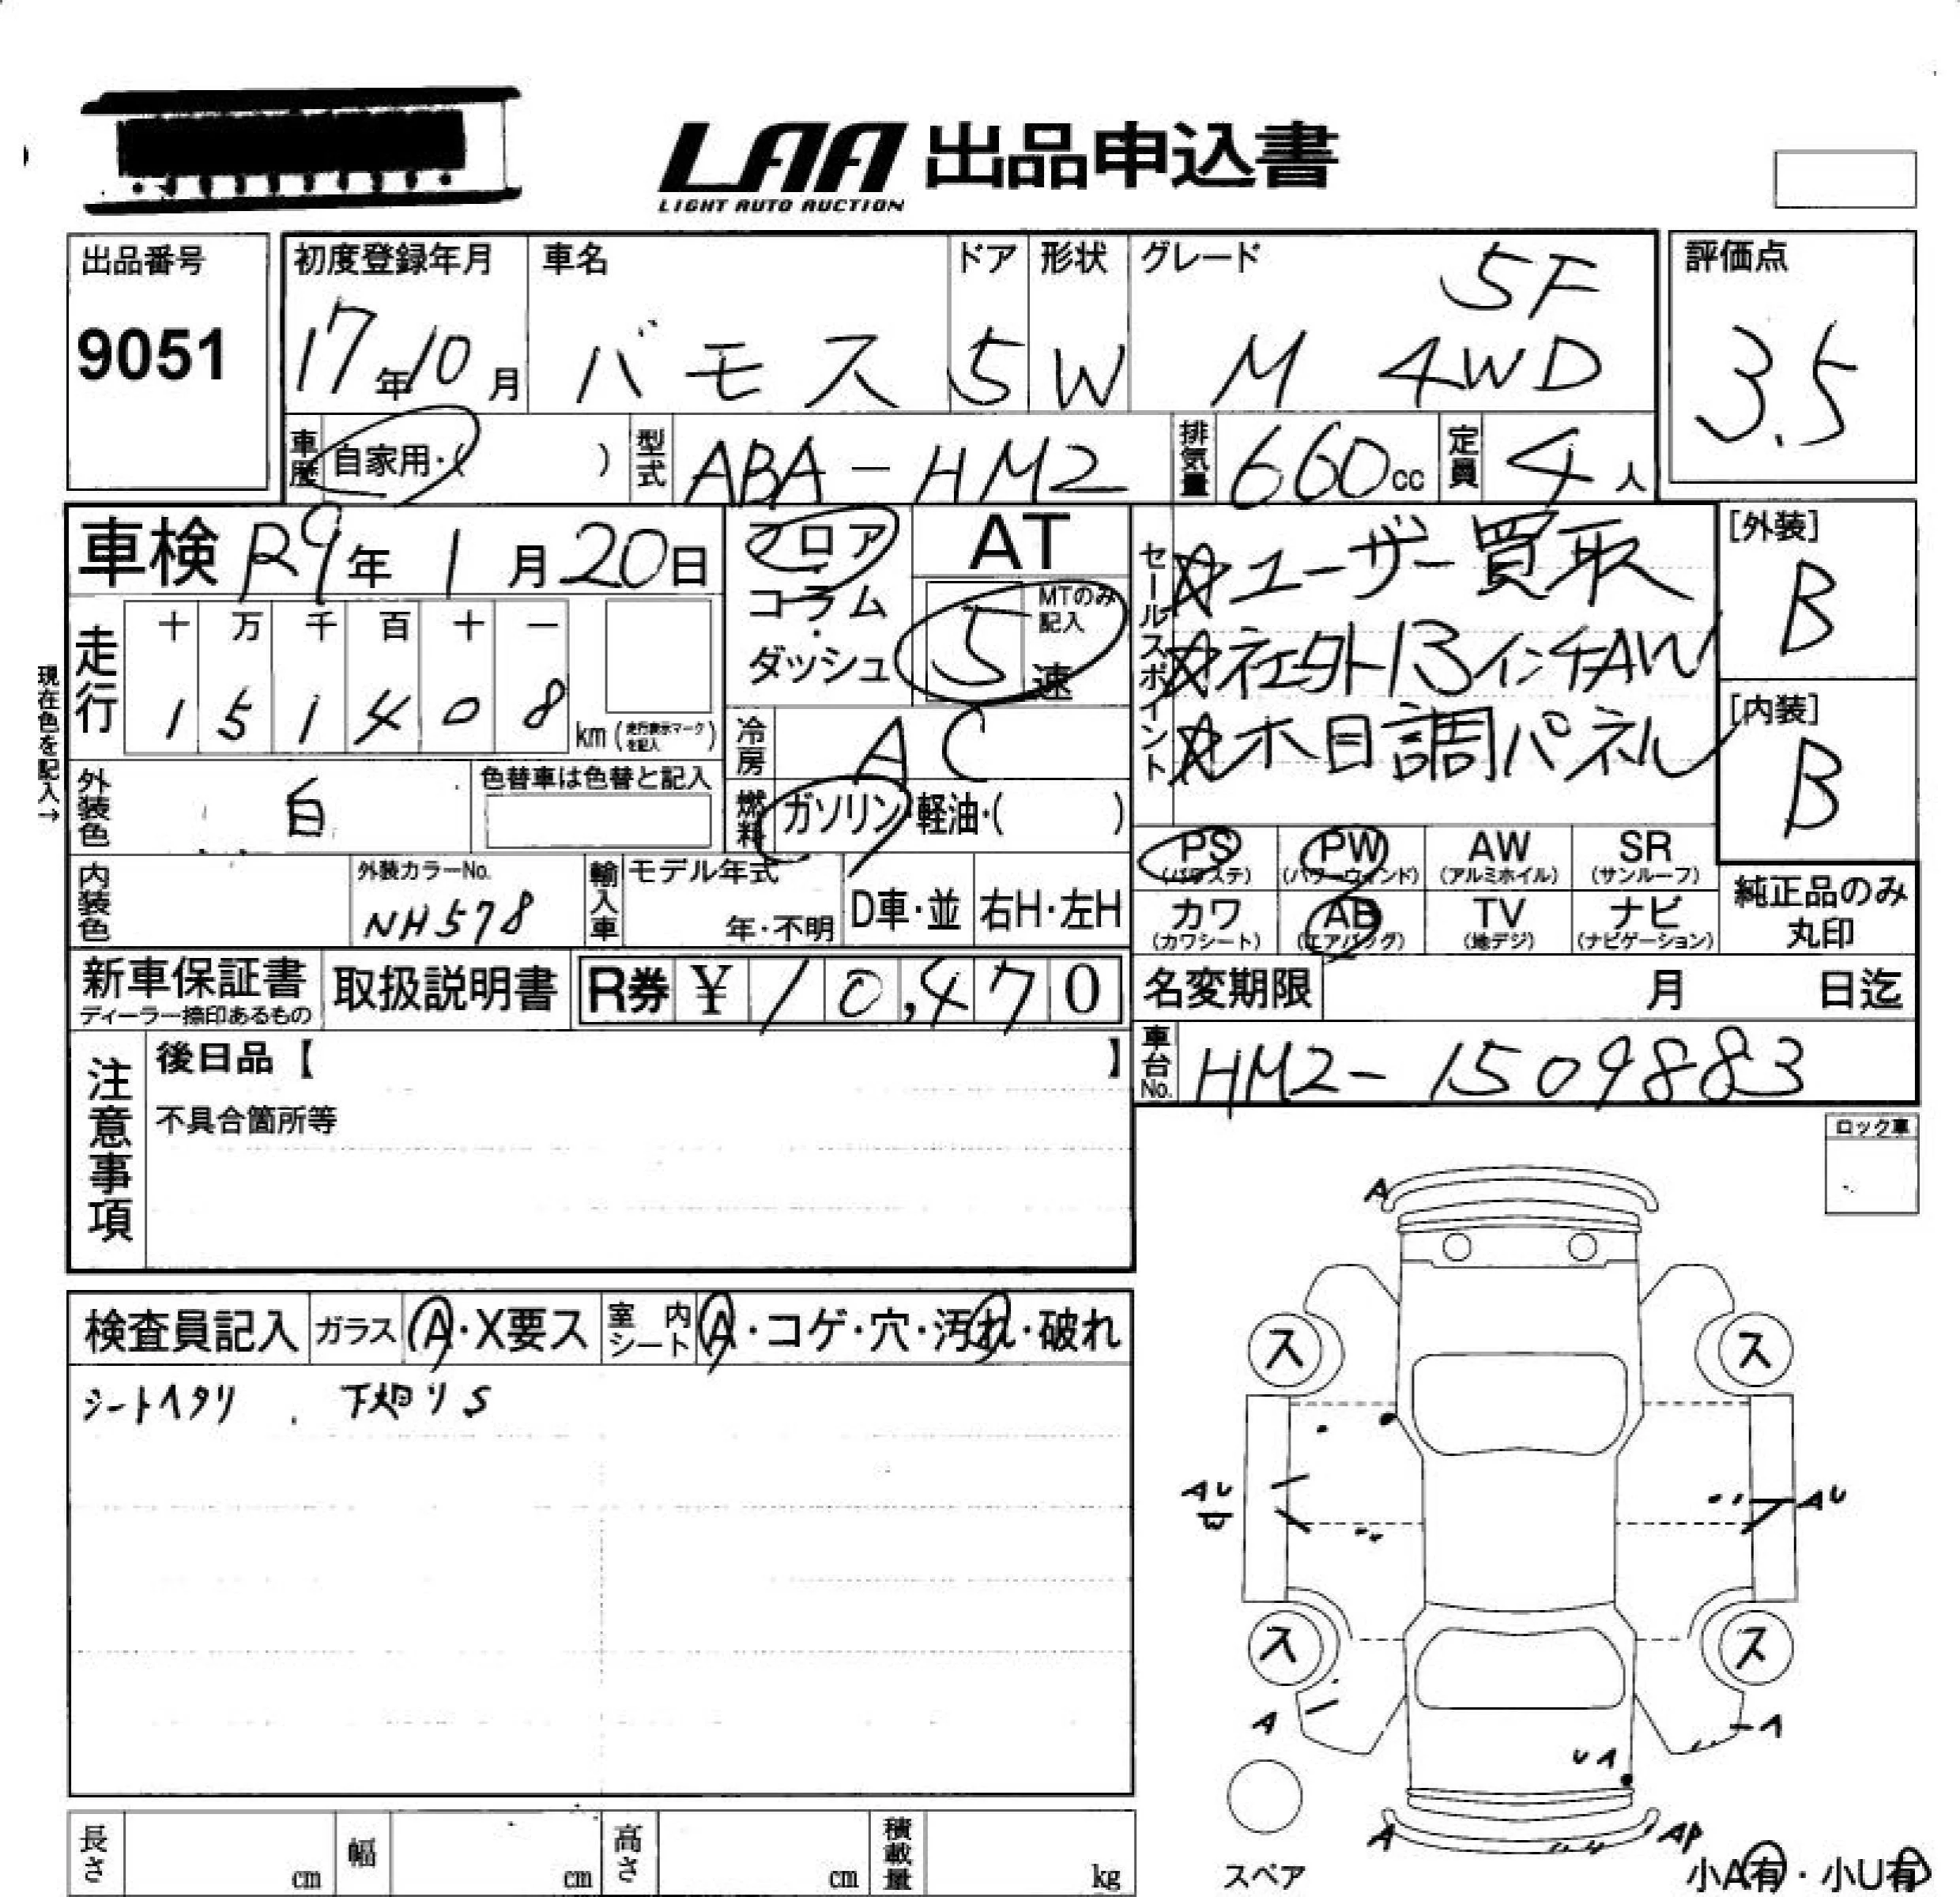 LAA 出品申込書
LIGHT AUTO AUCTION
出品番号
9051
初度登録年月
17年10月
車名
バモス
ドア
5
形状
W
グレード
5F
M 4WD
評価点
3.5
車歴
自家用・( )
型式
ABA-HM2
排気量
660cc
定員
4人
車検 R9年1月20日
走行
十 万 千 百 十 一
1 5 1 4 0 8
km(走行表示マークを記入)
現在色を記入→
フロア・コラム・ダッシュ
AT
5速
MTのみ記入
セールスポイント
☆ユーザー買取
☆社外13インチAW
☆木目調パネル
[外装]
B
[内装]
B
冷房
AC
燃料
ガソリン・軽油・( )
外装色
白
色替車は色替と記入
内装色
外装カラーNo.
NH578
輸入車
モデル年式
年・不明
D車・並
右H・左H
PS (パワステ)
PW (パワーウィンド)
AW (アルミホイル)
SR (サンルーフ)
カワ (カワシート)
AB (エアバッグ)
TV (地デジ)
ナビ (ナビゲーション)
純正品のみ
丸印
新車保証書
ディーラー捺印あるもの
取扱説明書
R券 ¥10,470
名変期限 月 日迄
車台No.
HM2-1509883
注意事項
後日品【 】
不具合箇所等
ロック車
検査員記入
ガラス A・X要ス
室内シート A・コゲ・穴・汚れ・破れ
シートヘタリ
下廻りS
A
ス
ス
AU
AU
ス
ス
A
A
UA
A
AP
スペア
小A有・小U有
長さ cm
幅 cm
高さ cm
積載量 kg